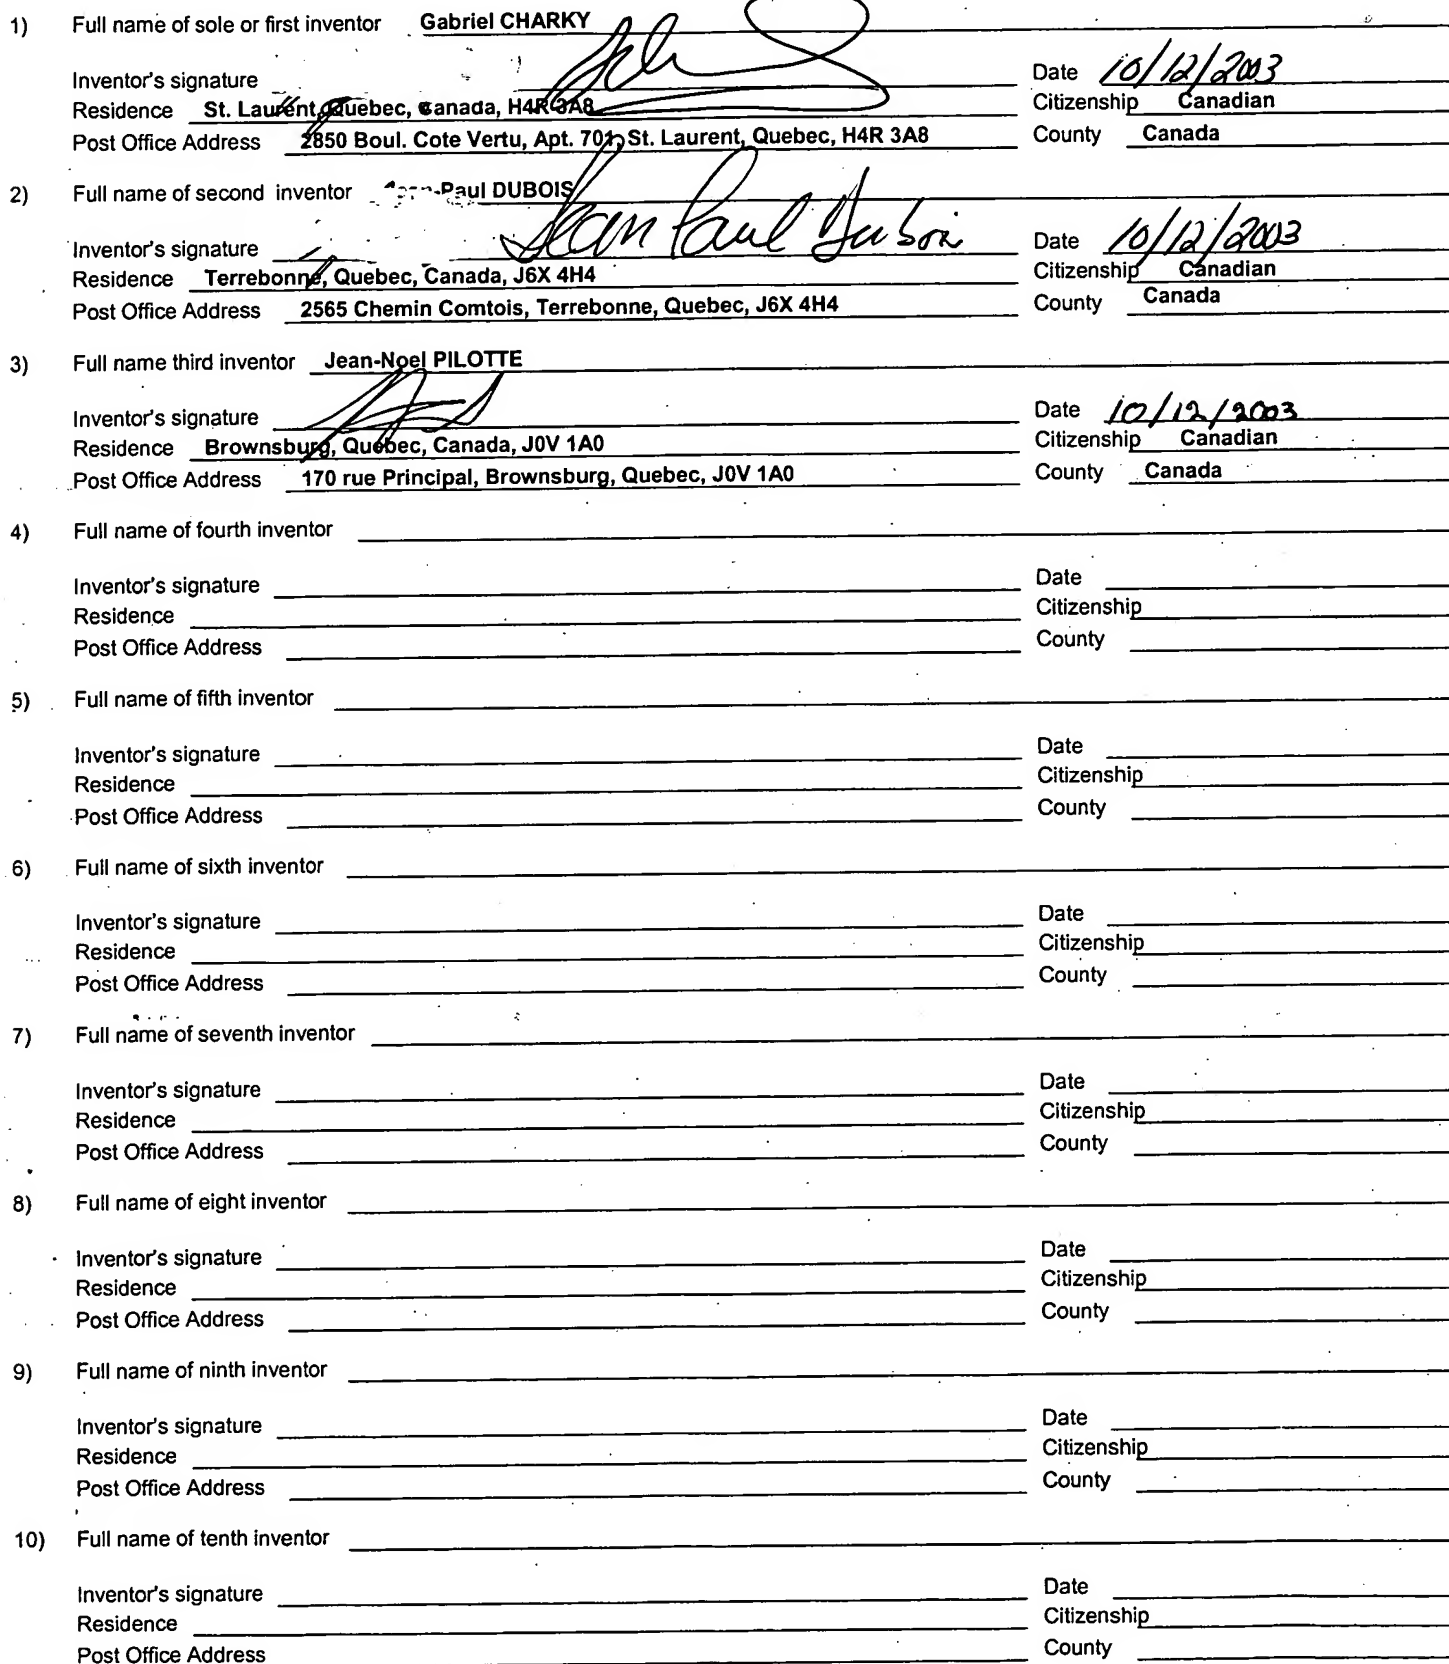 1) Full name of sole or first inventor Gabriel CHARKY
Inventor's signature Date 10/12/2003
Residence St. Laurent, Quebec, Canada, H4R 3A8 Citizenship Canadian
Post Office Address 2850 Boul. Cote Vertu, Apt. 701, St. Laurent, Quebec, H4R 3A8 County Canada
2) Full name of second inventor Jean-Paul DUBOIS
Inventor's signature Jean Paul Dubois Date 10/12/2003
Residence Terrebonne, Quebec, Canada, J6X 4H4 Citizenship Canadian
Post Office Address 2565 Chemin Comtois, Terrebonne, Quebec, J6X 4H4 County Canada
3) Full name third inventor Jean-Noel PILOTTE
Inventor's signature Date 10/12/2003
Residence Brownsburg, Quebec, Canada, J0V 1A0 Citizenship Canadian
Post Office Address 170 rue Principal, Brownsburg, Quebec, J0V 1A0 County Canada
4) Full name of fourth inventor
Inventor's signature Date
Residence Citizenship
Post Office Address County
5) Full name of fifth inventor
Inventor's signature Date
Residence Citizenship
Post Office Address County
6) Full name of sixth inventor
Inventor's signature Date
Residence Citizenship
Post Office Address County
7) Full name of seventh inventor
Inventor's signature Date
Residence Citizenship
Post Office Address County
8) Full name of eight inventor
Inventor's signature Date
Residence Citizenship
Post Office Address County
9) Full name of ninth inventor
Inventor's signature Date
Residence Citizenship
Post Office Address County
10) Full name of tenth inventor
Inventor's signature Date
Residence Citizenship
Post Office Address County